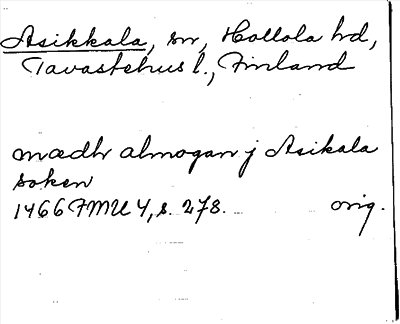 Asikkala, sn, Hollola hd,
Tavastehus l., Finland
mædh almogan j Asikala
soken
1466 FMU 4, s. 278. orig.